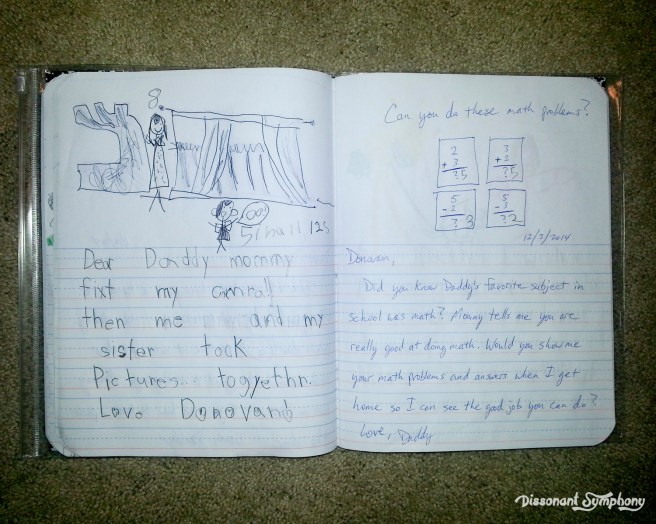 8.
Dear Daddy mommy
fixt my camra!!
then me and my
sister took
Pictures togyethr.
Love Donovan
Can you do these math problems?
2
+ 3
?5
3
+ 2
?5
5
- 2
?3
5
- 3
?2
12/3/2014
Donovan,
Did you know Daddy's favorite subject in
school was math? Mommy tells me you are
really good at doing math. Would you show me
your math problems and answers when I get
home so I can see the good job you can do?
Love, Daddy
Dissonant Symphony